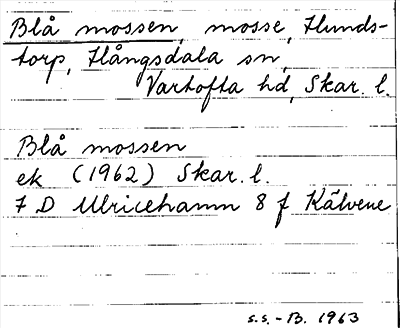 Blå mossen, mosse, Hunds-
torp, Hångsdala sn,
Vartofta hd, Skar. l.
Blå mossen
ek (1962) Skar. l.
7 D Ulricehamn 8 f Kälvene
s.s. - B. 1963